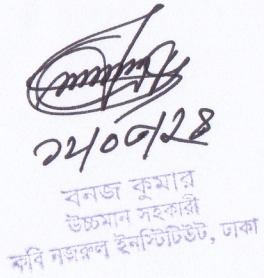 ১২/০৫/২৪
বনজ কুমার
উচ্চমান সহকারী
কবি নজরুল ইনস্টিটিউট, ঢাকা